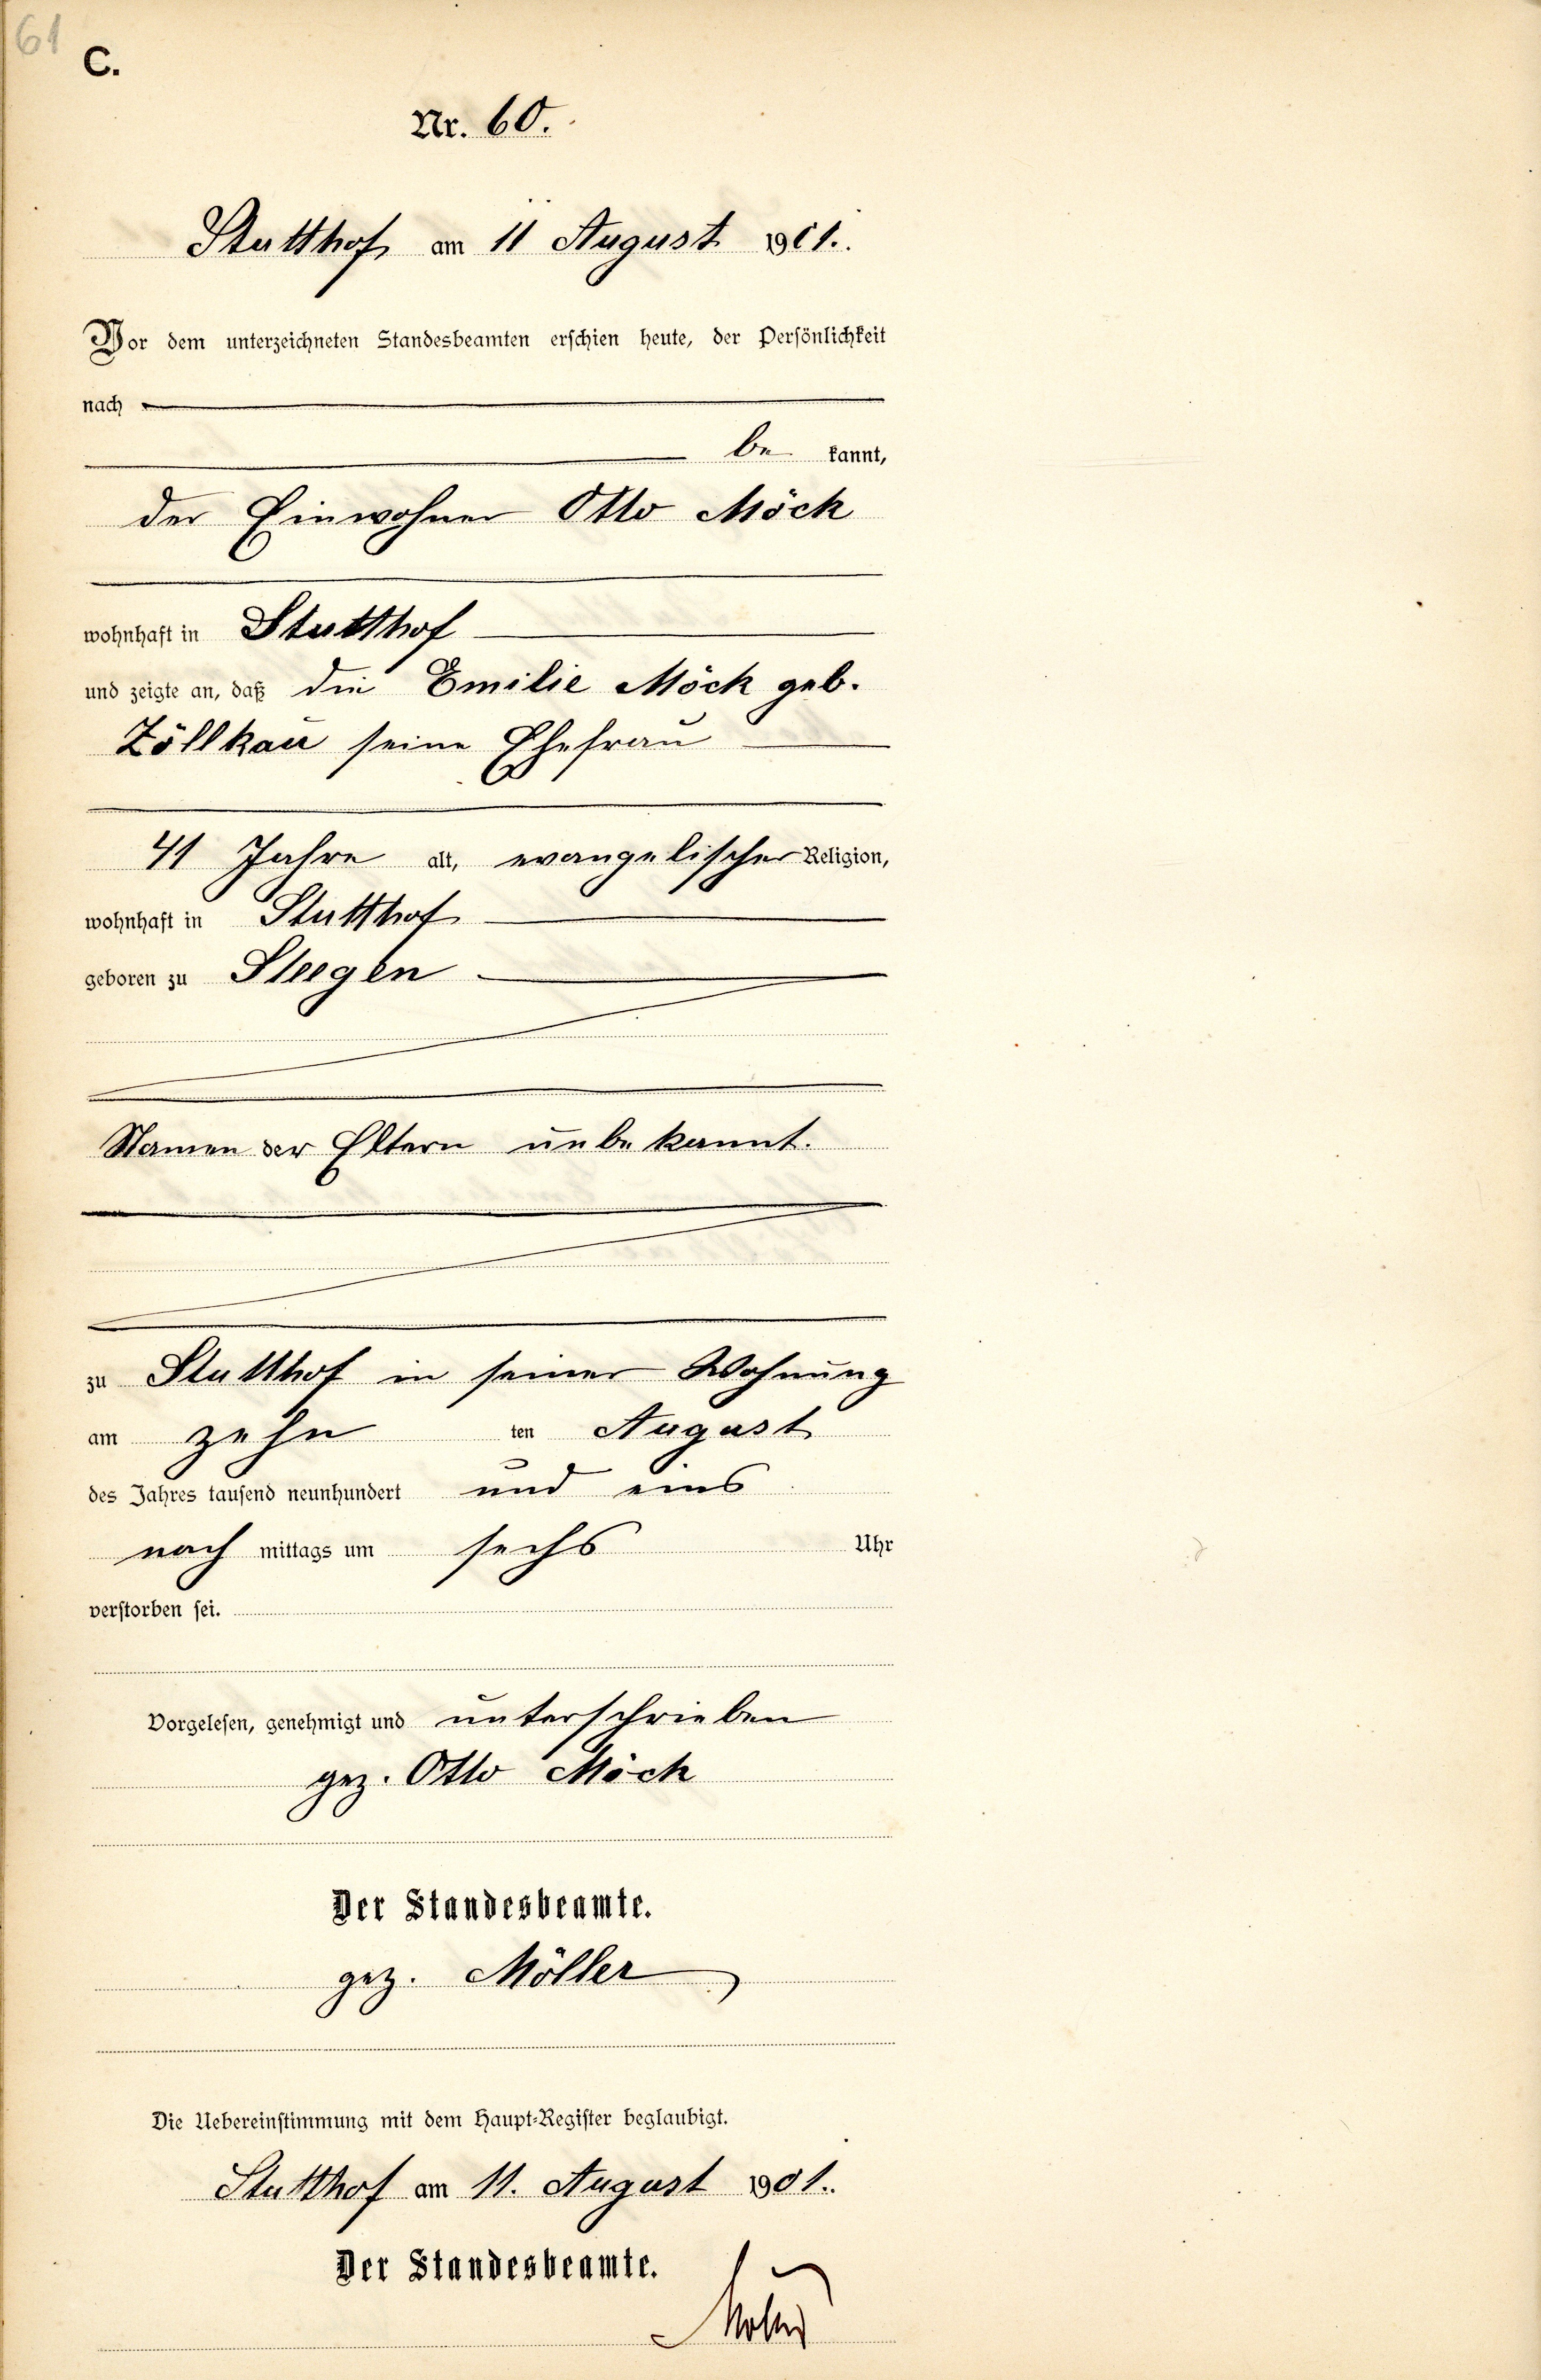 61
C.
Nr. 60.
Stutthof am 11 August 1901.
Vor dem unterzeichneten Standesbeamten erschien heute, der Persönlichkeit
nach
be kannt,
der Einwohner Otto Möck
wohnhaft in Stutthof
und zeigte an, daß die Emilie Möck geb.
Zöllkau seine Ehefrau
41 Jahre alt, evangelischer Religion,
wohnhaft in Stutthof
geboren zu Steegen
Namen der Eltern unbekannt.
zu Stutthof in seiner Wohnung
am zehn ten August
des Jahres tausend neunhundert und eins
nach mittags um sechs Uhr
verstorben sei.
Vorgelesen, genehmigt und unterschrieben
gez. Otto Möck
Der Standesbeamte.
gez. Möller
Die Uebereinstimmung mit dem Haupt-Register beglaubigt.
Stutthof am 11. August 1901.
Der Standesbeamte.
Möller